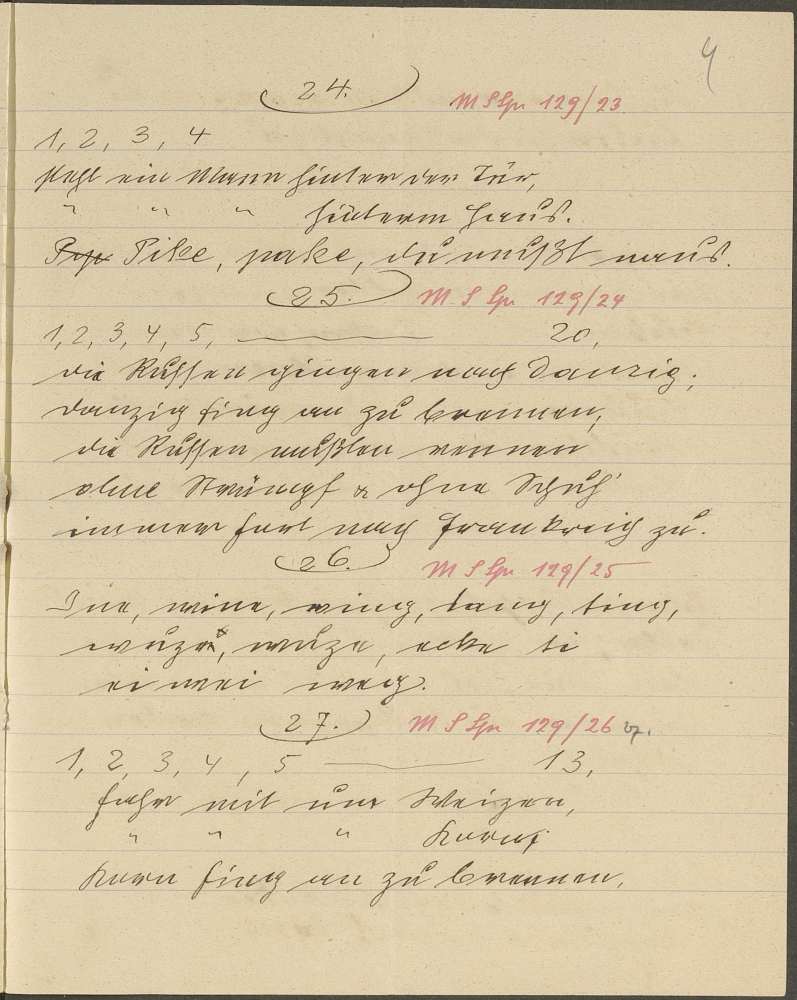 4
24. M S Spr 129/23
1, 2, 3, 4
steht ein Mann hinter der Tür,
" " " hinterm Haus.
Pike, pake, du mußt naus.
25. M. S Spr 129/24
1, 2, 3, 4, 5, 20,
die Russen gingen nach Danzig;
Danzig fing an zu brennen,
die Russen mußten rennen
ohne Strümpf & ohne Schuh'
immer fort nach Frankreich zu.
26. M S Spr 129/25
Ine, mine, ming, tang, ting,
wuze, wuze, ecke ti
ei wei weg.
27. M S Spr 129/26
1, 2, 3, 4, 5 13,
fahr mit um Weizen,
" " " Korn,
Korn fing an zu brennen,